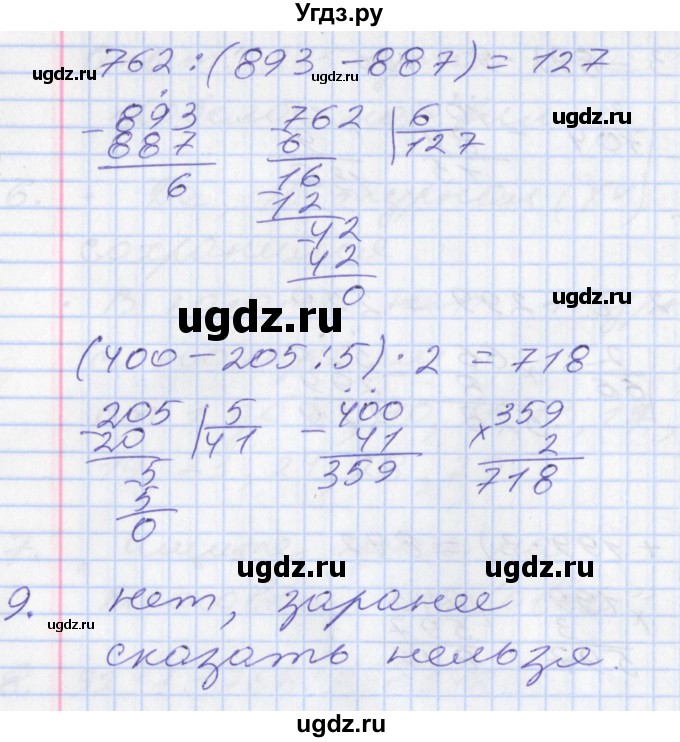 Угдз.ру
762 : (893 - 887) = 127
893 762 6
- 887 6 127
6 16
12
42
42
0
(400 - 205 : 5) · 2 = 718
205 5 400 359
20 41 - 41 × 2
5 359 718
5
0
9. нет, заранее
сказать нельзя.
ugdz.ru
ugdz.ru
ugdz.ru
ugdz.ru
ugdz.ru
ugdz.ru
ugdz.ru
ugdz.ru
ugdz.ru
ugdz.ru
ugdz.ru